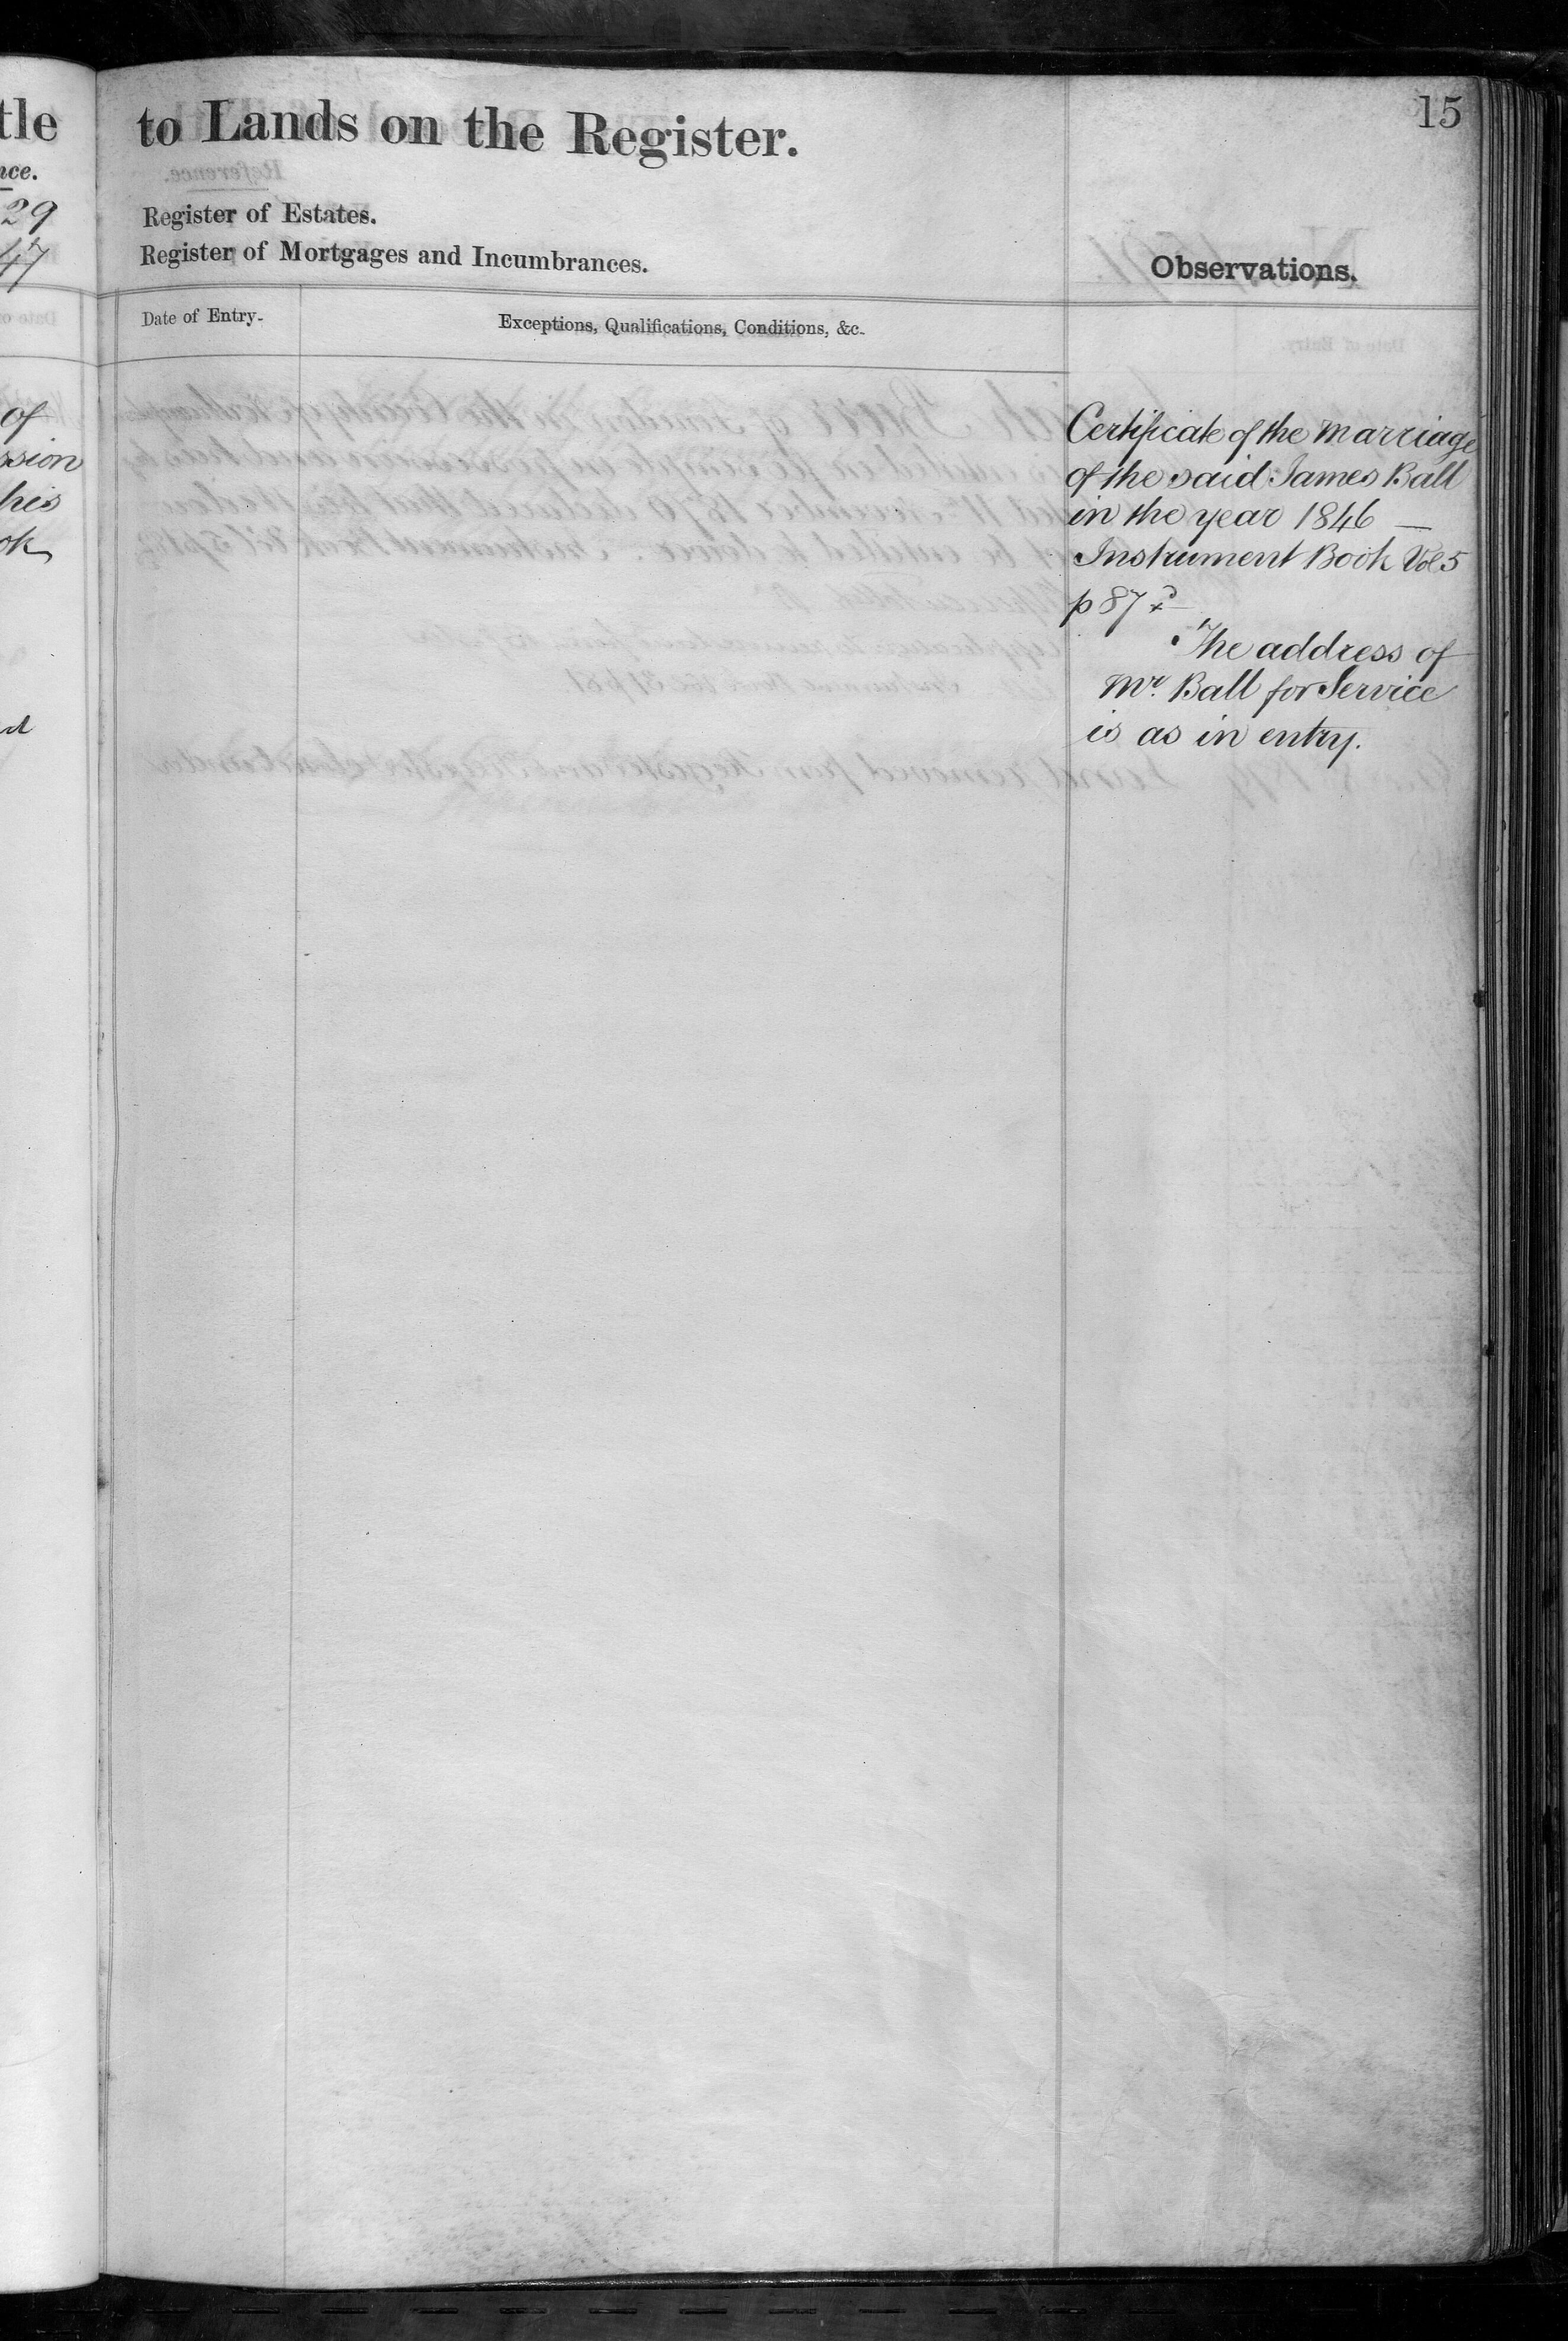 tle
nce.
29
47
of
ssion
his
ok
15
to Lands on the Register.
Register of Estates.
Register of Mortgages and Incumbrances.
Observations.
Date of Entry.
Exceptions, Qualifications, Conditions, &c.
Certificate of the Marriage
of the said James Ball
in the year 1846 —
Instrument Book Vol 5
p 87
The address of
Mr. Ball for Service
is as in entry.